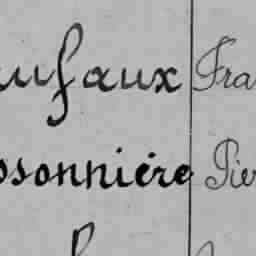 ufaux Fra
osonnière Pier